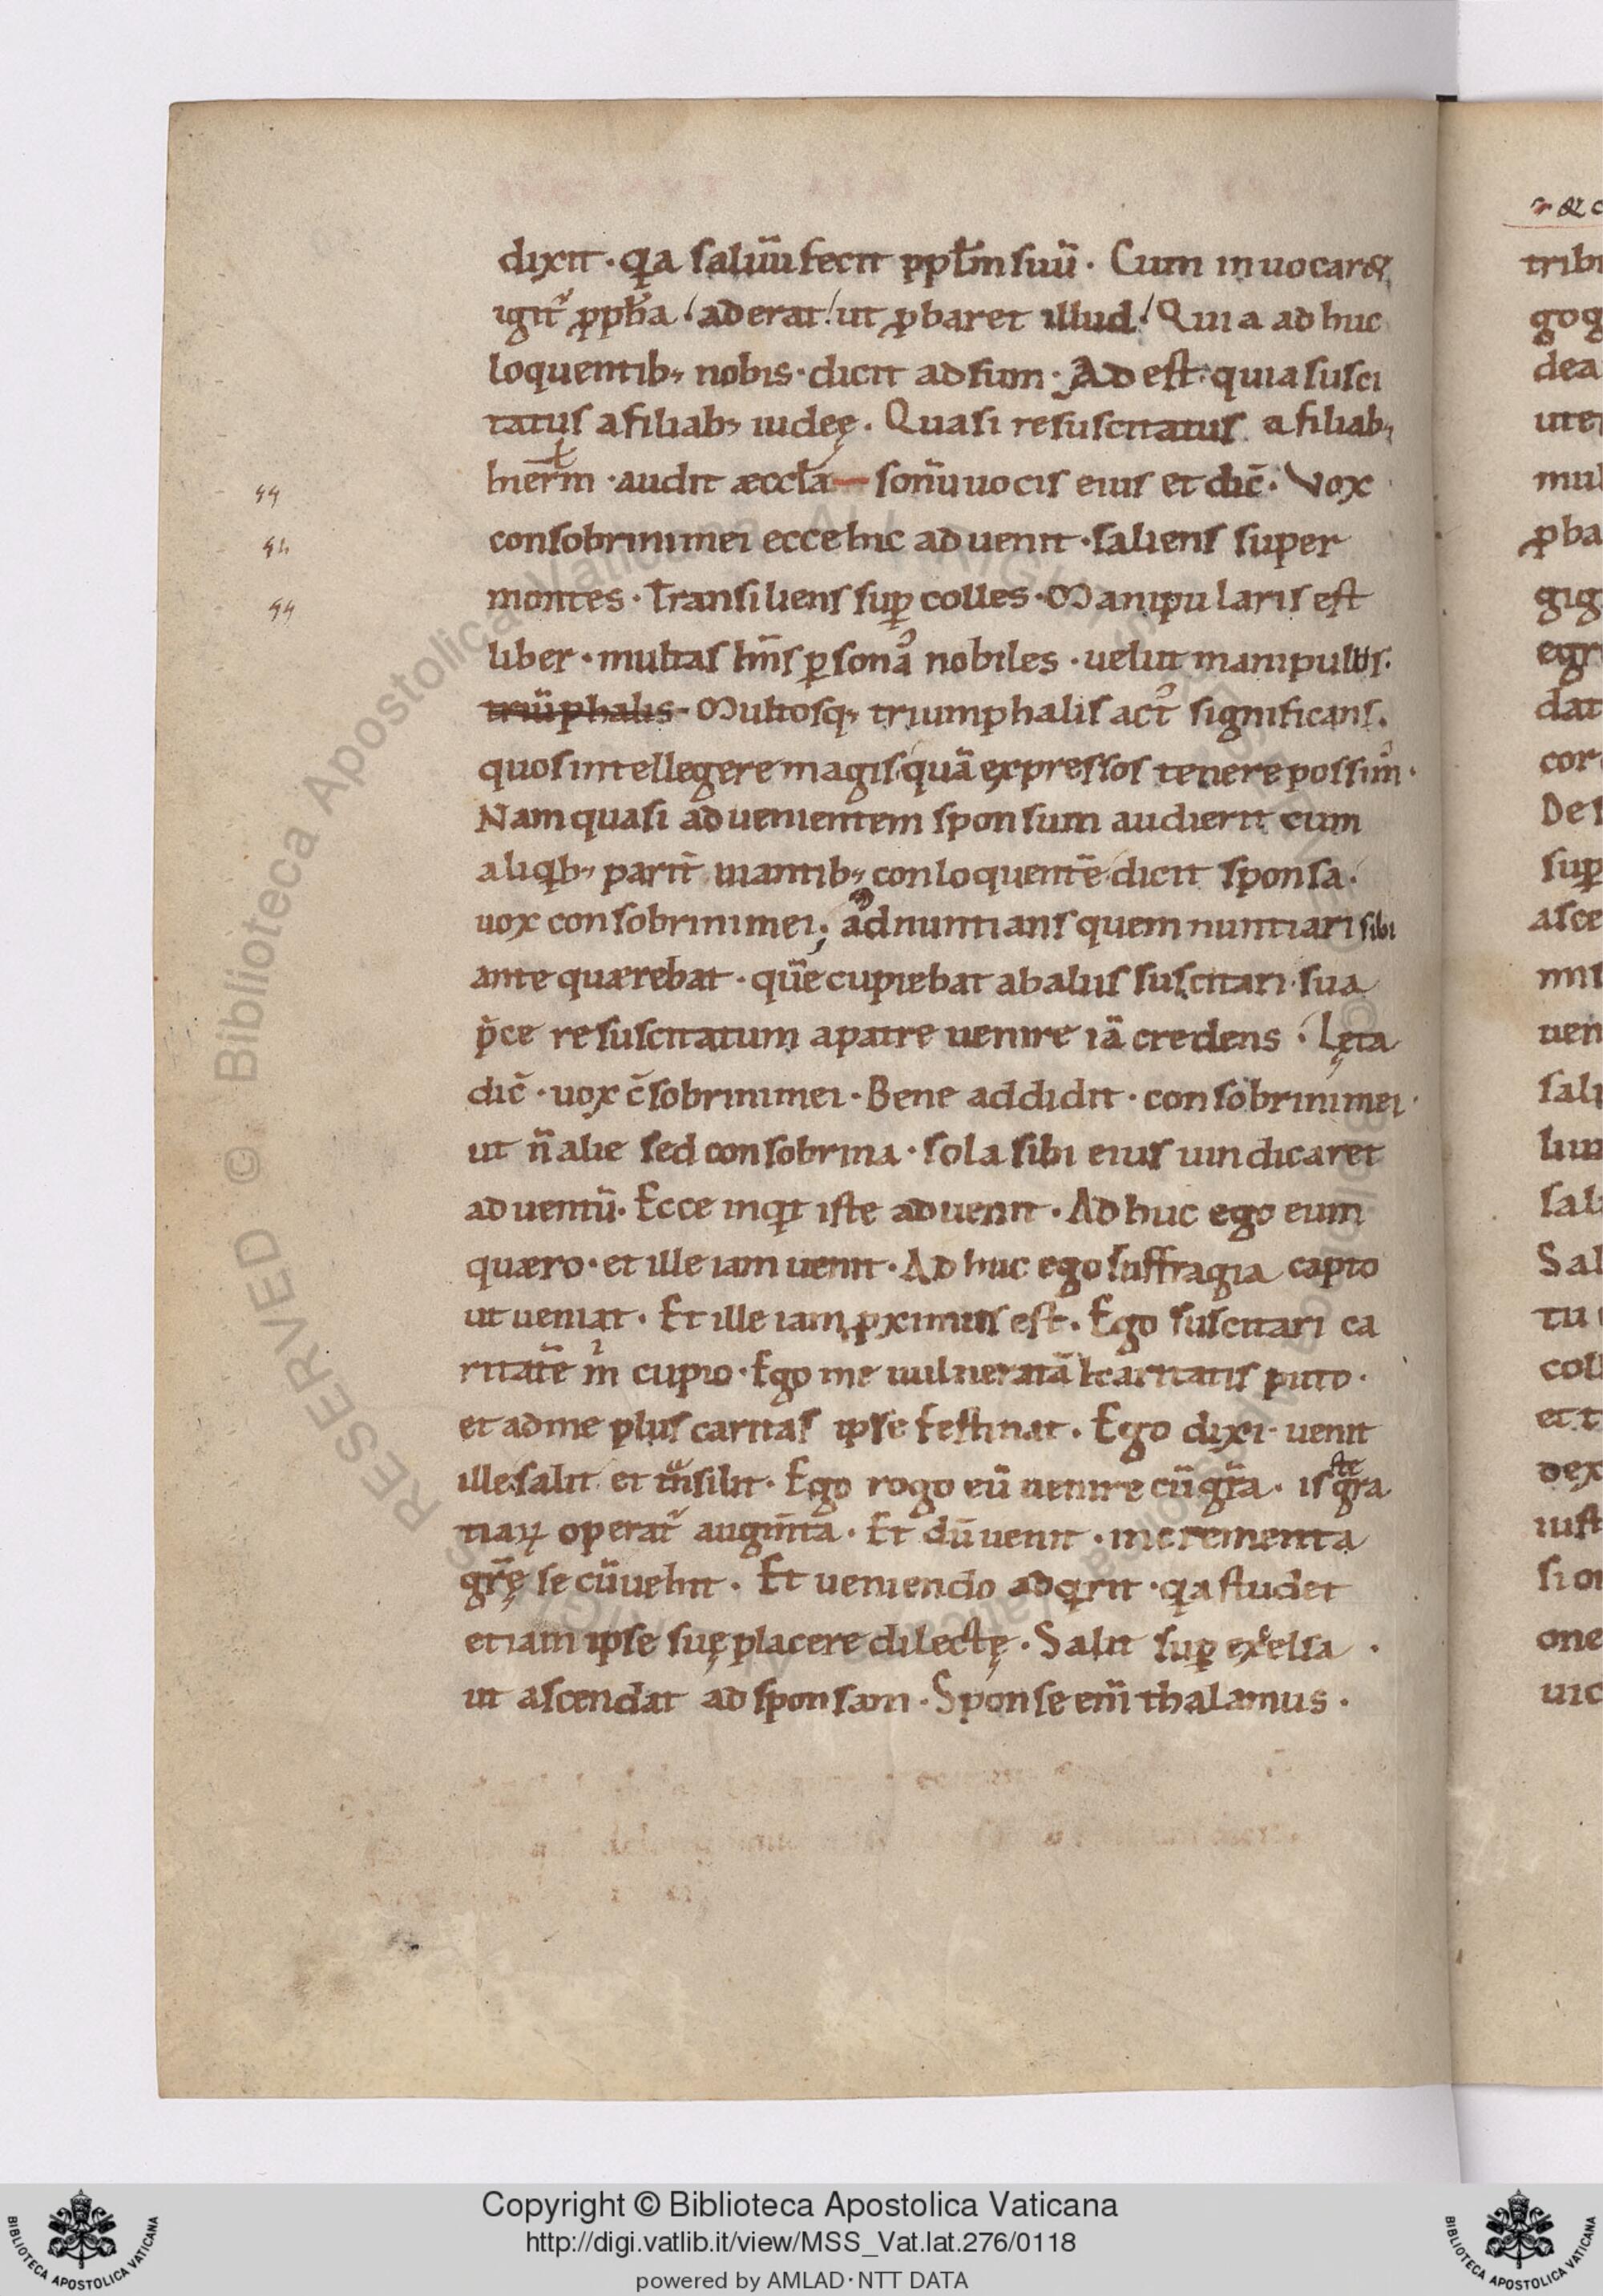 dixit · qa saluū fecit ppl̄m suū · Cum inuocar&
igit᷒ ꝓph̄a / aderat / ut ꝓbaret illud / Quia adhuc
loquentib; nobis · dicit adsum · Adest · quia susci
tatus a filiab; iudeę · Quasi resuscitatus a filiab;
hierl̄m · audit æccl̄a sonū uocis eius et dic̄ · Vox
consobrini mei ecce hic aduenit · saliens super
montes · Transiliens suꝑ colles · Manipularis est
liber · multas hn̄s ꝑsonaꝰ nobiles · uelut manipulus ·
triūphalis · Multosq; triumphalis actꝰ significans ·
quos intellegere magis quā expressos tenere possimꝰ ·
Nam quasi aduenientem sponsum audierit cum
aliqb; parit̄ uiantib; conloquentē dicit sponsa ·
uox consobrini mei ; adnuntians quem nuntiari sibi
ante quærebat · quē cupiebat ab aliis suscitari · sua
p̄ce resuscitatum a patre uenire iā credens · Lęta
dic̄ · uox c̄sobrini mei · Bene addidit · consobrini mei ·
ut n̄ alie sed consobrina · sola sibi eius uindicaret
aduentū · Ecce inqt iste aduenit · Adhuc ego eum
quæro · et ille iam uenit · Adhuc ego suffragia capto
ut ueniat · Et ille iam ꝓximus est · Ego suscitari ca
ritatē m̄ cupio · Ego me uulneratā caritatis puto ·
et ad me plus caritas ipse festinat · Ego dixi · ueni
ille salit et tn̄silit · Ego rogo eū uenire cū gr̄a · iste gra
tiaꝝ operat᷒ augm̄ta · Et dū uenit · incrementa
gr̄ę secū uehit · Et ueniendo adqrit · qa studet
etiam ipse suę placere dilectę · Salit suꝑ excelsa ·
ut ascendat ad sponsam · Sponse enī thalamus ·
Copyright © Biblioteca Apostolica Vaticana
http://digi.vatlib.it/view/MSS_Vat.lat.276/0118
powered by AMLAD·NTT DATA